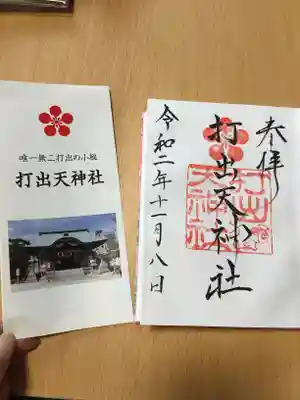 唯一無二打出の小槌
打出天神社
奉拝
打出天神社
打出
天神
社
令和二年十一月八日